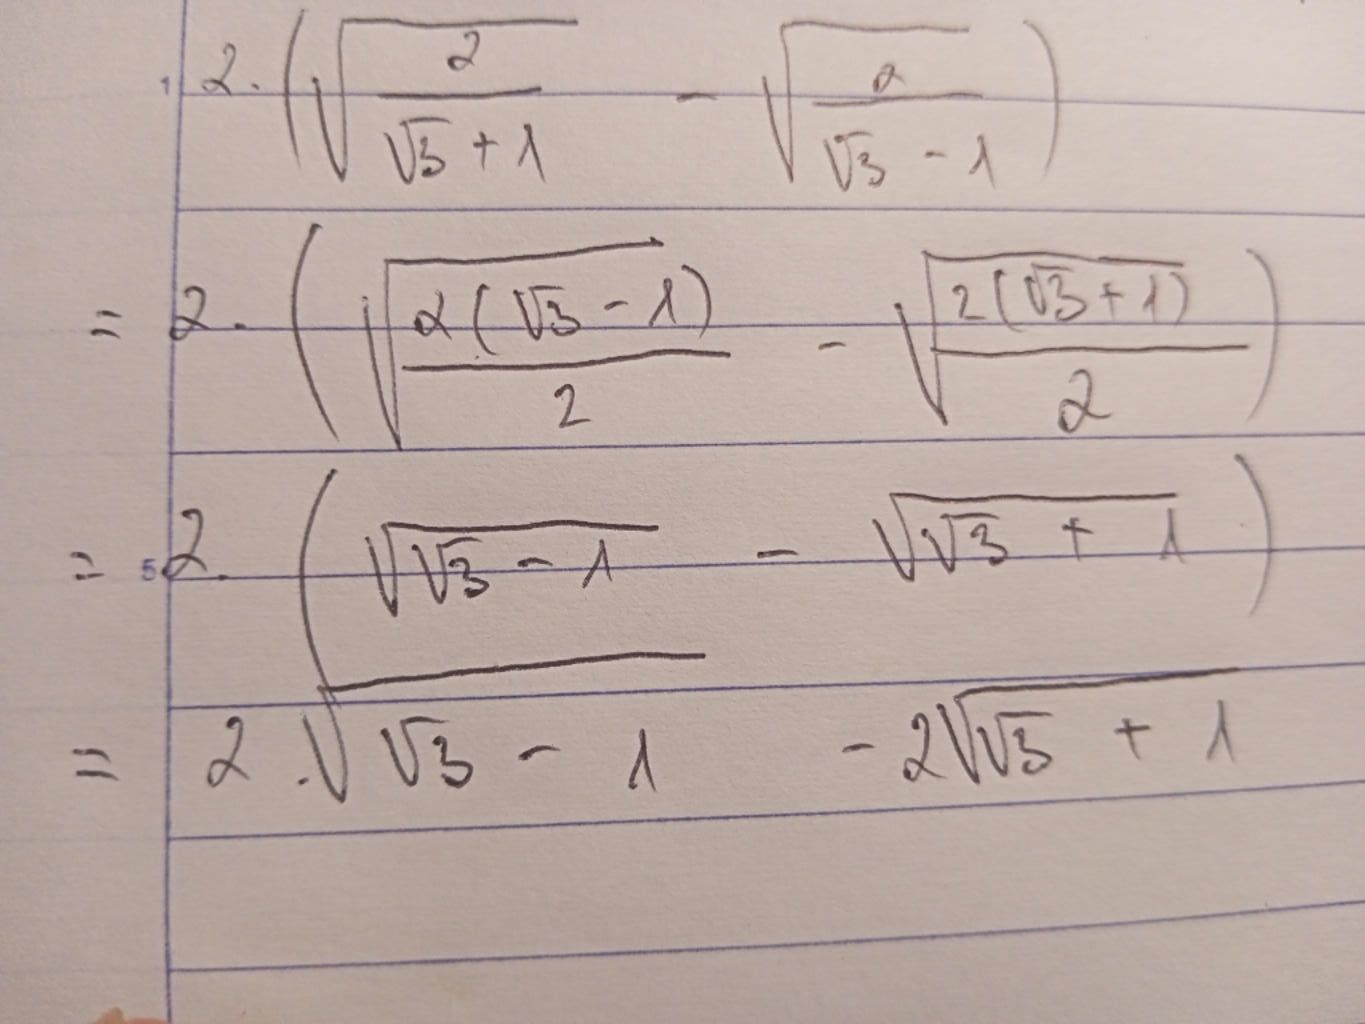 1 2·(√(2/(√3 + 1)) - √(2/(√3 - 1)))
= 2·(√(2(√3 - 1)/2) - √(2(√3 + 1)/2))
= 5 2·(√(√3 - 1) - √(√3 + 1))
= 2·√(√3 - 1) - 2√(√3 + 1)